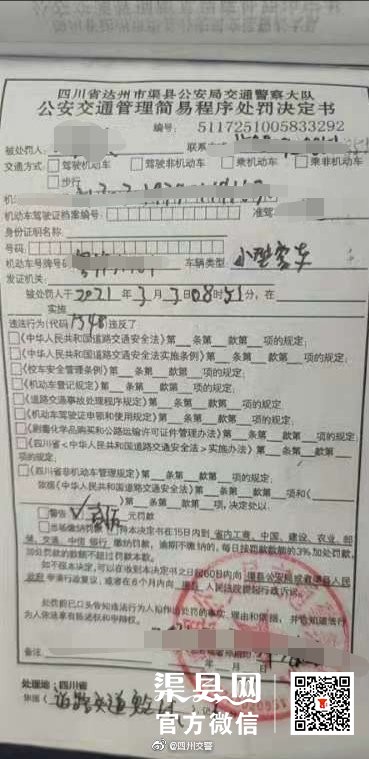 四川省达州市渠县公安局交通警察大队
公安交通管理简易程序处罚决定书
编号: 5117251005833292
被处罚人: 联系
交通方式: □驾驶机动车 □驾驶非机动车 □乘机动车 □乘非机动车
□步行
机动车驾驶证档案编号: 准驾
身份证明名称:
号码:
机动车号牌号码 车辆类型: 小型客车
发证机关:
被处罚人于2021年3月3日08时51分,在
实施
违法行为(代码1348)违反了
□《中华人民共和国道路交通安全法》第 条第 款第 项的规定;
□《中华人民共和国道路交通安全法实施条例》第 条第 款第 项的规定;
□《校车安全管理条例》第 条第 款第 项的规定;
□《机动车登记规定》第 条第 款第 项的规定;
□《道路交通事故处理程序规定》第 条第 款第 项的规定;
□《机动车驾驶证申领和使用规定》第 条第 款第 项的规定;
□《剧毒化学品购买和公路运输许可证件管理办法》第 条第 款第 项的规定;
□《四川省<中华人民共和国道路交通安全法>实施办法》第 条第 款第
项的规定;
□《四川省非机动车管理规定》第 条第 款第 项的规定;
依据《中华人民共和国道路交通安全法》第 条第 款第 项和(
)第 条第 款第 项,决定处以
□警告 元罚款
□当场缴纳罚款 持本决定书在15日内到 省内工商、中国、建设、农业、邮
储、交通、中信 银行 缴纳罚款,逾期不缴纳的,每日按罚款数额的3%加处罚款,
加处罚款的数额不超过罚款本数。
如不服本决定,可以在收到本决定书之日起60日内向 渠县公安局或者渠县人民
政府 申请行政复议,或者在6个月内向 人民法院提起行政诉讼。
处罚前已口头告知违法行为人拟作出处罚的事实、理由和依据,并告知违法行为
人依法享有陈述权和申辩权。
备注:
年 月 日
处理地: 四川省
依据(
渠县网
官方微信
@四川交警